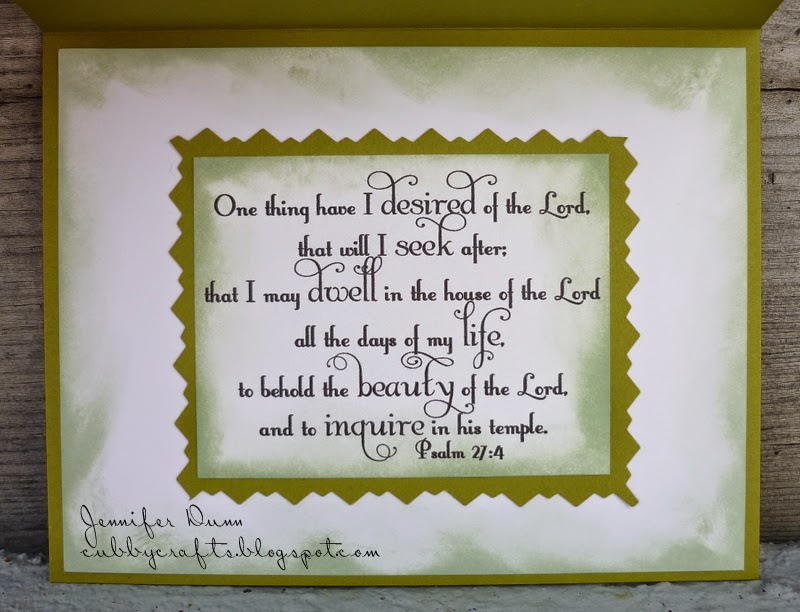 One thing have I desired of the Lord,
that will I seek after;
that I may dwell in the house of the Lord
all the days of my life,
to behold the beauty of the Lord,
and to inquire in his temple.
Psalm 27:4
Jennifer Dunn
cubbycrafts.blogspot.com